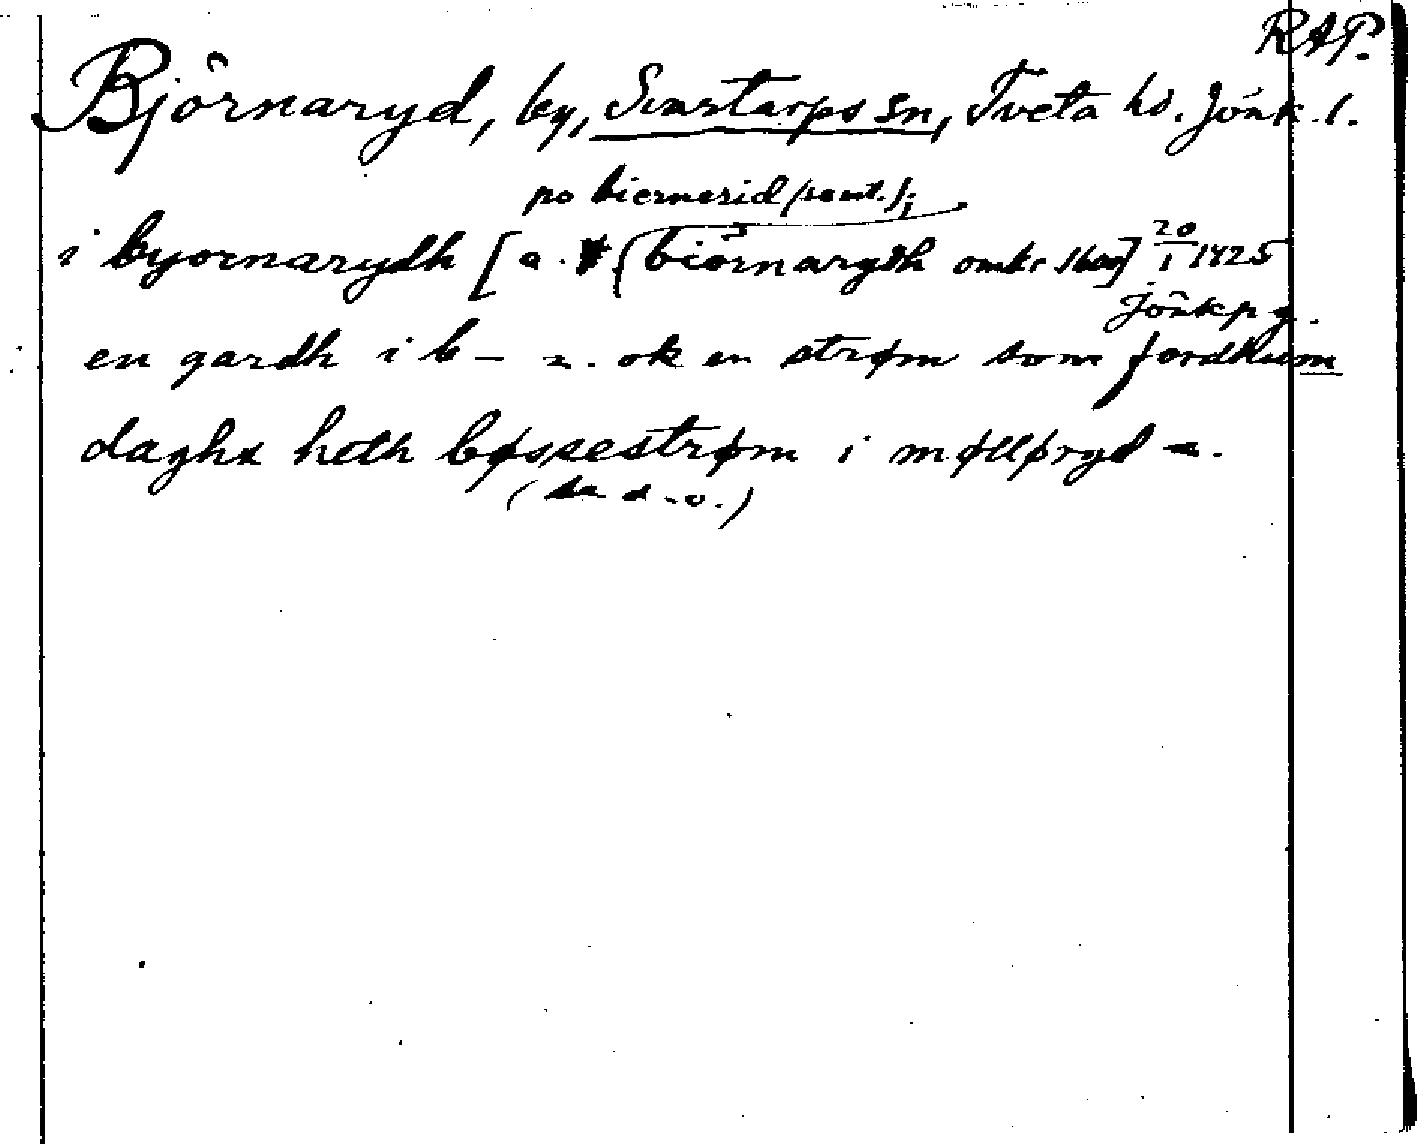 RAP.
Björnaryd, by, Svarttorps sn, Tveta hd. Jönk. l.
po biernerid (samt.);
i byornarydh [a. biörnarydh omkr 1600] 20/1 1425
Jönkpg.
en gardh i b – n. ok en strøm som fordhum
daghx heth bøssestrøm i mølløryd n.